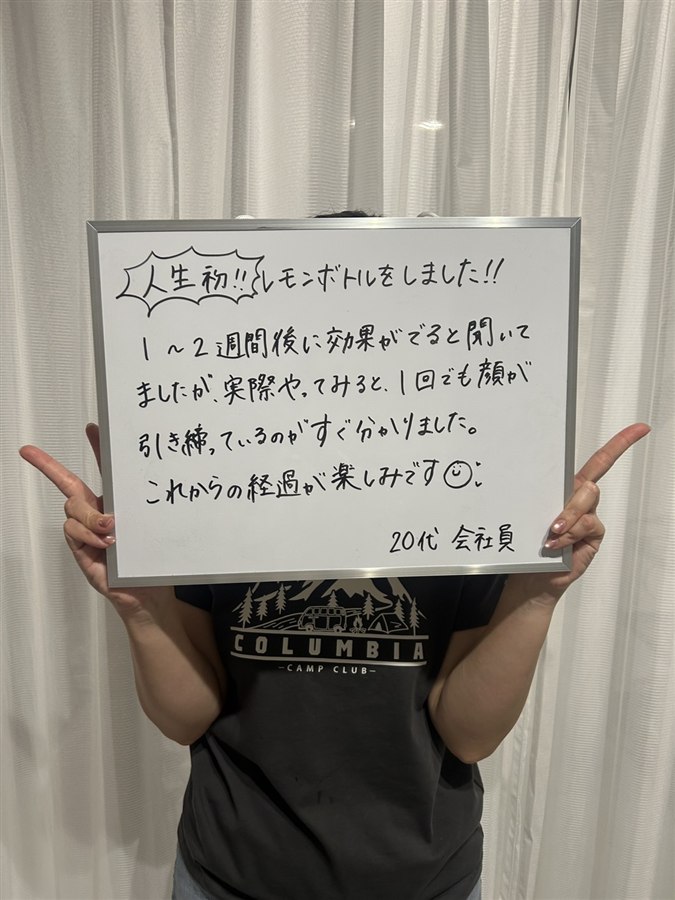 人生初!! レモンボトルをしました!!
1～2週間後に効果がでると聞いて
ましたが、実際やってみると、1回でも顔が
引き締っているのがすぐ分かりました。
これからの経過が楽しみです
20代 会社員
COLUMBIA
-CAMP CLUB-